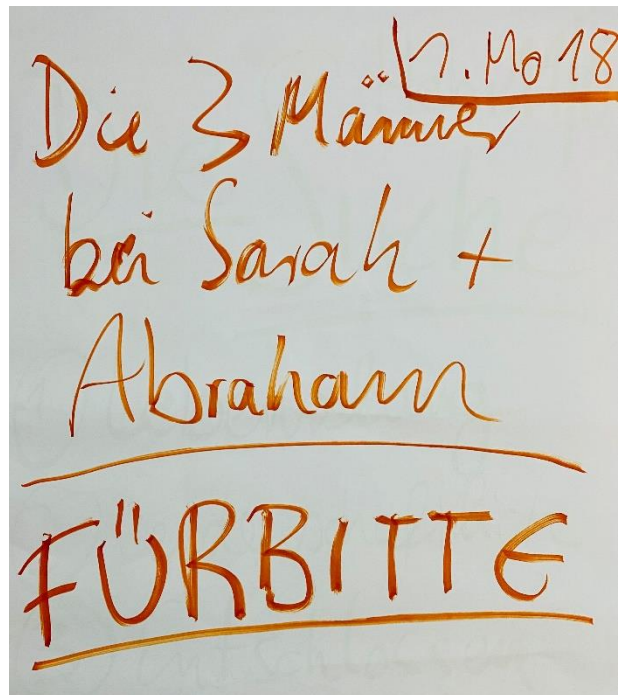 1. Mo 18
Die 3 Männer
bei Sarah +
Abraham
FÜRBITTE